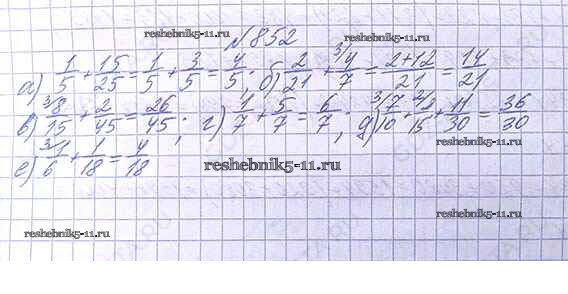 №852 reshebnik5-11.ru
а) 1/5 + 15/25 = 1/5 + 3/5 = 4/5; б) 2/21 + ³⁾4/7 = 2+12/21 = 14/21
в) ³⁾8/15 + 2/45 = 26/45; г) 1/7 + 5/7 = 6/7; д) ³⁾7/10 + ²⁾2/15 + 11/30 = 36/30
е) ³⁾1/6 + 1/18 = 4/18 reshebnik5-11.ru
reshebnik5-11.ru
reshebnik5-11.ru